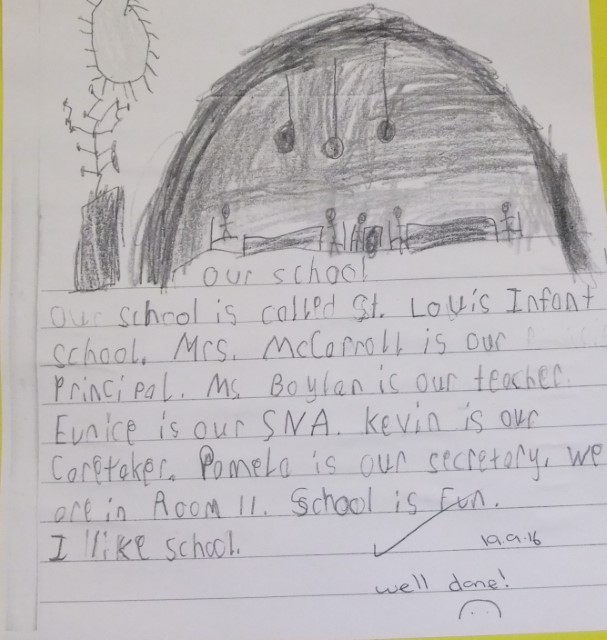 our school
Our school is called St. Louis Infant
school. Mrs. McCarroll is our
Principal. Ms Boylan is our teacher.
Eunice is our SNA. Kevin is our
Caretaker. Pamela is our secretary, we
are in Room 11. School is Fun.
I like school.
19.9.16
well done!